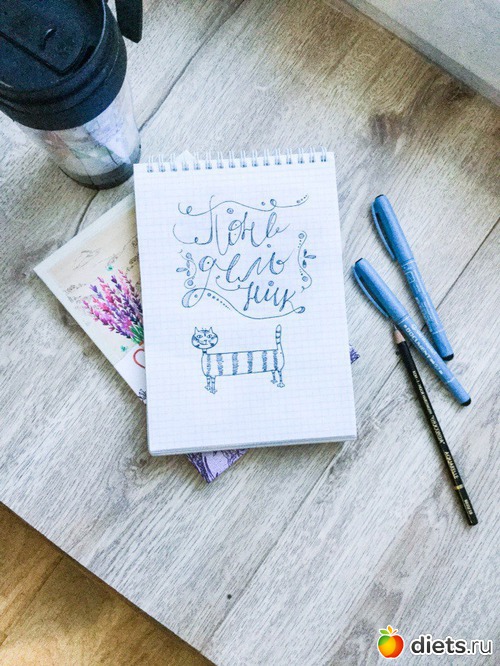 Поне
дель
ник
diets.ru